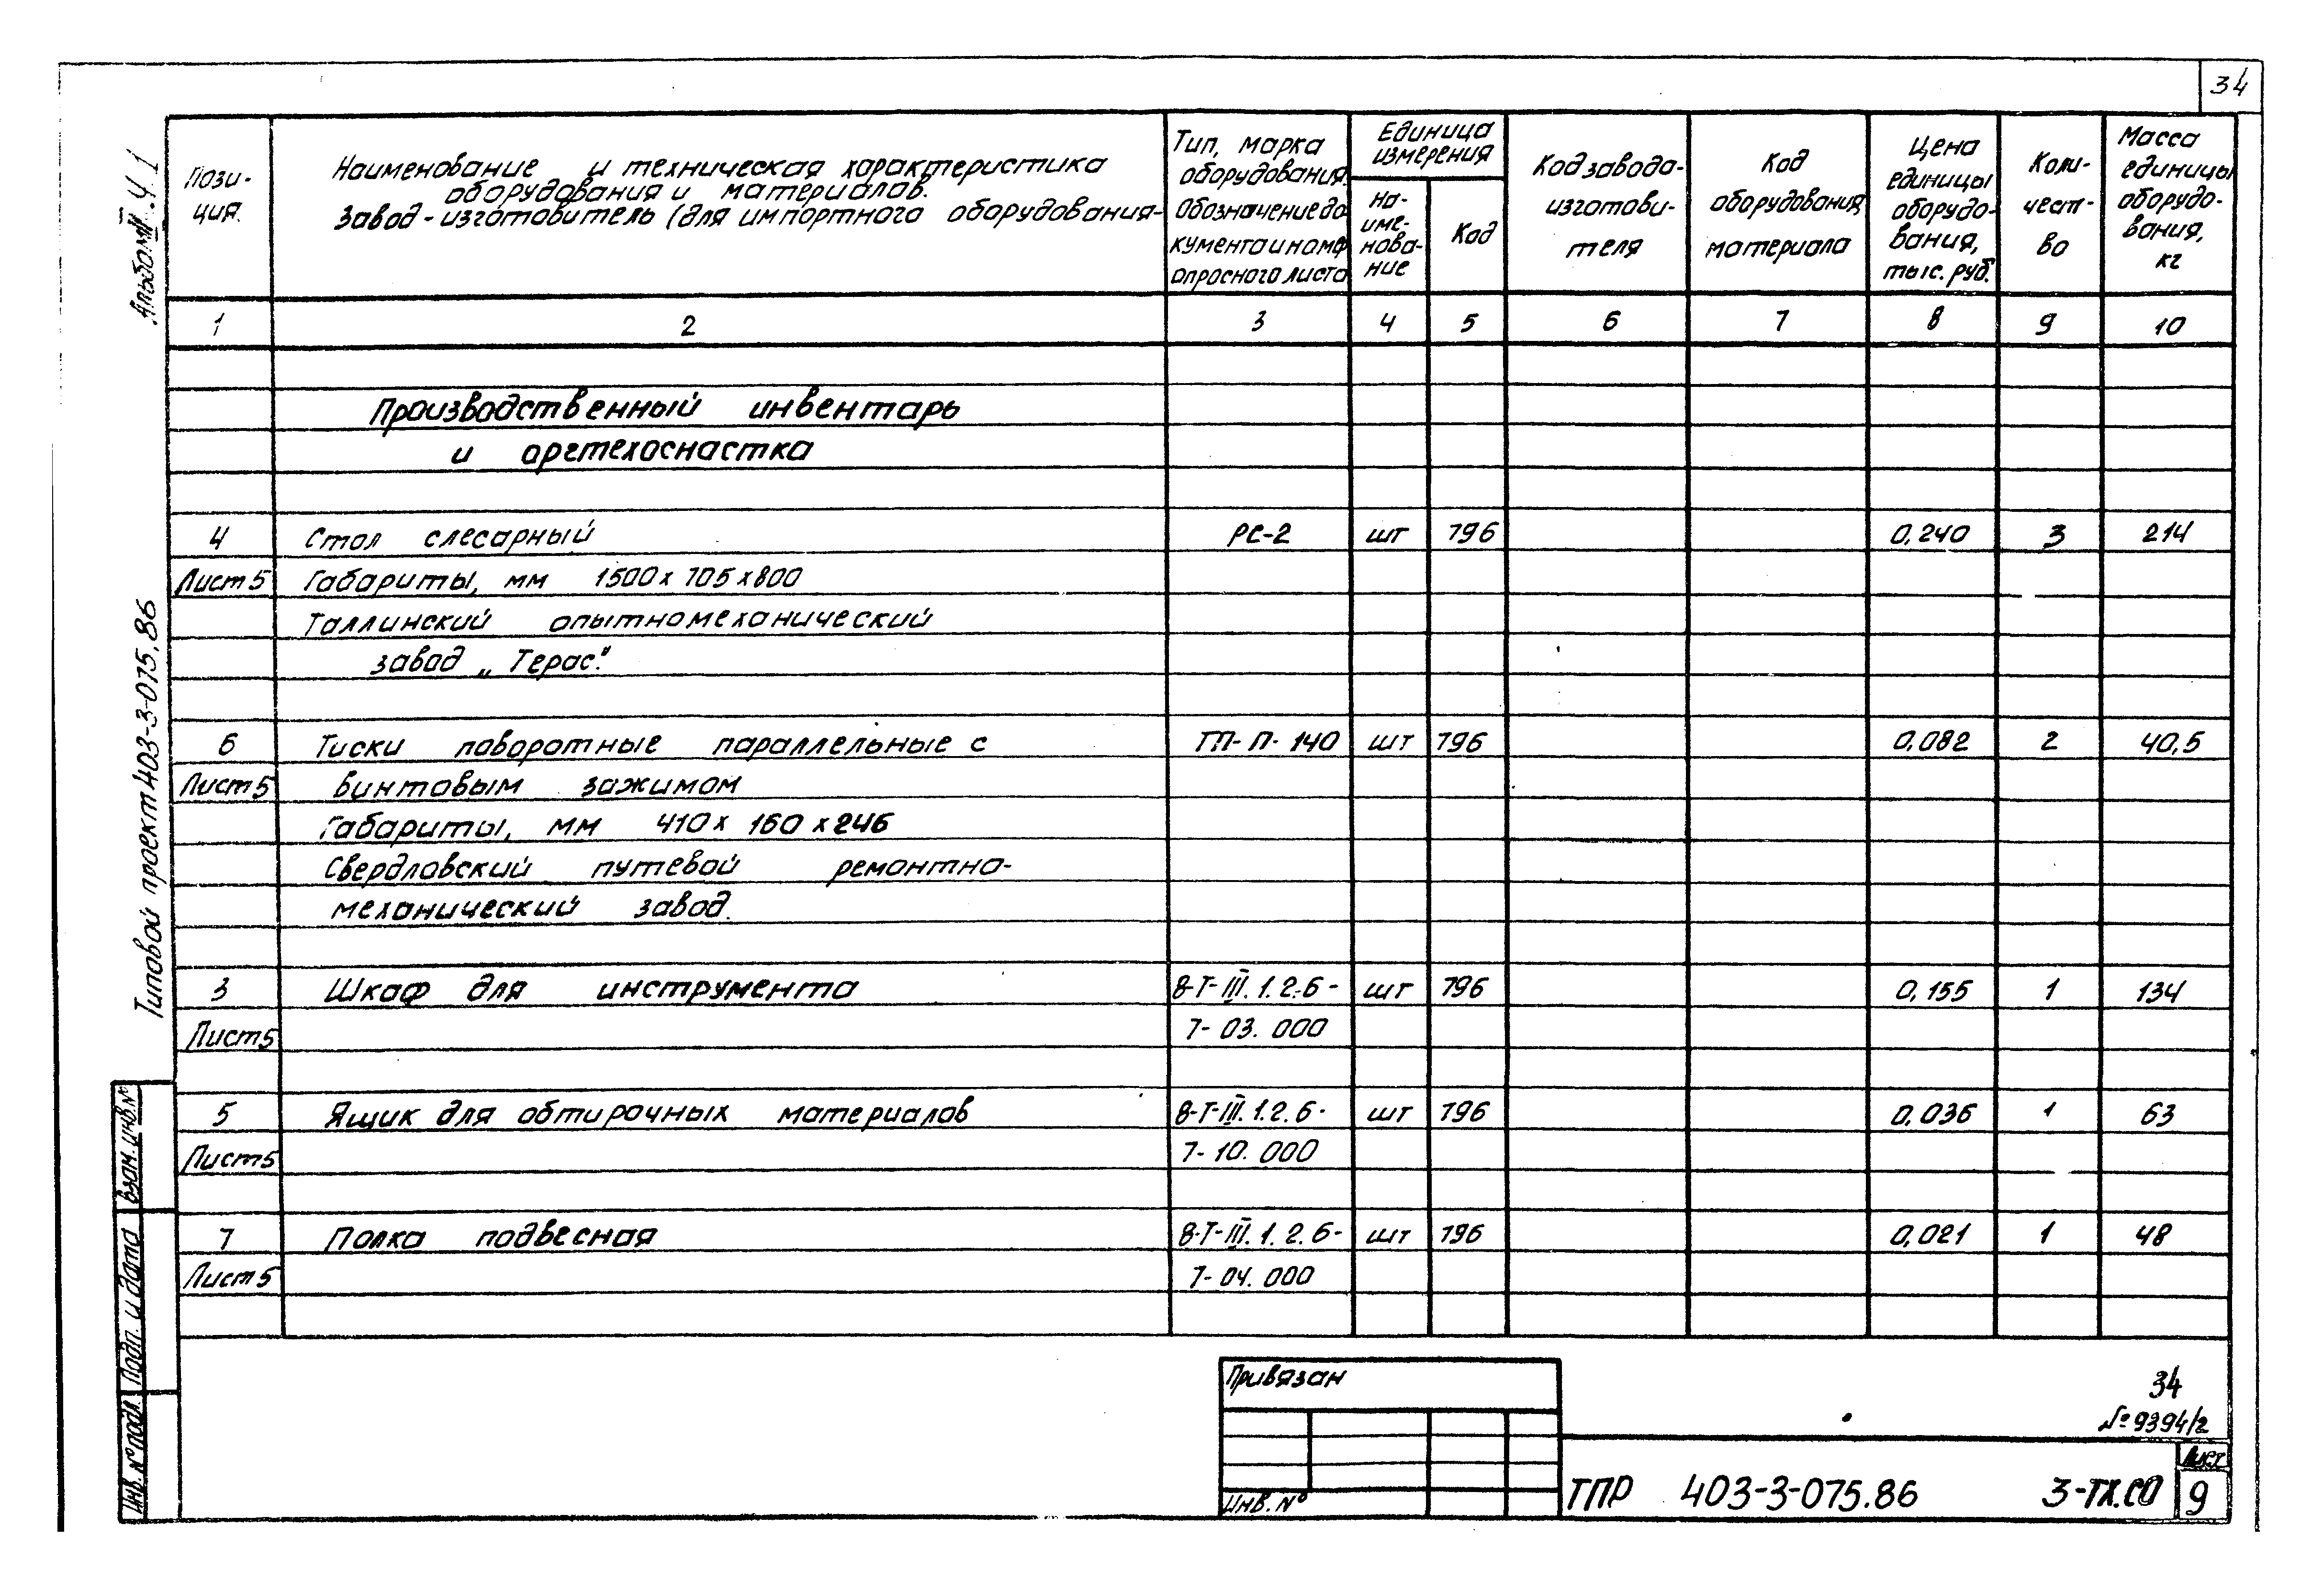 34
Альбом III Ч. 1
Типовой проект 403-3-075.86
Пози-
ция.
Наименование и техническая характеристика
оборудования и материалов.
Завод-изготовитель (для импортного оборудования-
Тип, марка
оборудования.
Обозначение до
кумента и ном
опросного листа
Единица
измерения
На-
име-
нова-
ние
Код
Код завода-
изготови-
теля
Код
оборудования,
материала
Цена
единицы
оборудо-
вания,
тыс. руб.
Коли-
чест-
во
Масса
единицы
оборудо-
вания,
кг
1 2 3 4 5 6 7 8 9 10
Производственный инвентарь
и оргтехоснастка
4 Стол слесарный РС-2 шт 796 0,240 3 214
Лист 5 Габариты, мм 1500 х 705 х 800
Таллинский опытномеханический
завод „Терас."
6 Тиски поворотные параллельные с ТП-П-140 шт 796 0,082 2 40,5
Лист 5 винтовым зажимом
Габариты, мм 410 х 160 х 246
Свердловский путевой ремонтно-
механический завод.
3 Шкаф для инструмента 8-Т-III.1.2.-6- шт 796 0,155 1 134
Лист 5 7-03.000
5 Ящик для обтирочных материалов 8-Т-III.1.2.6- шт 796 0,036 1 63
Лист 5 7-10.000
7 Полка подвесная 8-Т-III.1.2.6- шт 796 0,021 1 48
Лист 5 7-04.000
Взам. инв. №
Подп. и дата
Инв. № подл.
Привязан
Инв. №
34
№ 9394/2
ТПР 403-3-075.86 3-ТХ.СО
Лист
9